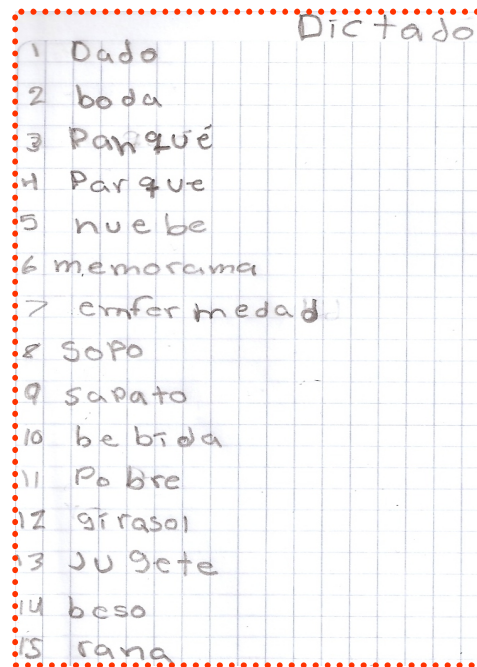 Dictado
1 Dado
2 boda
3 Panqué
4 Parque
5 nuebe
6 memorama
7 emfermedad
8 Sopo
9 sapato
10 bebida
11 Pobre
12 girasol
13 Jugete
14 beso
15 rana